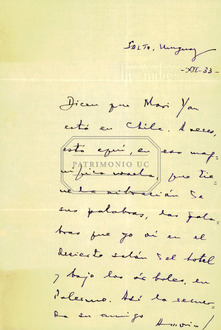 Salto, Uruguay
-XII-33-
Dicen que Mari Yan
está en Chile. A veces,
está aquí, en esa mag-
nífica novela, que tie-
ne la vibración de
sus palabras, las pala-
bras que yo oí en el
desierto salón del hotel
y bajo los árboles, en
Palermo. Así la recuer-
da su amigo
PATRIMONIO UC